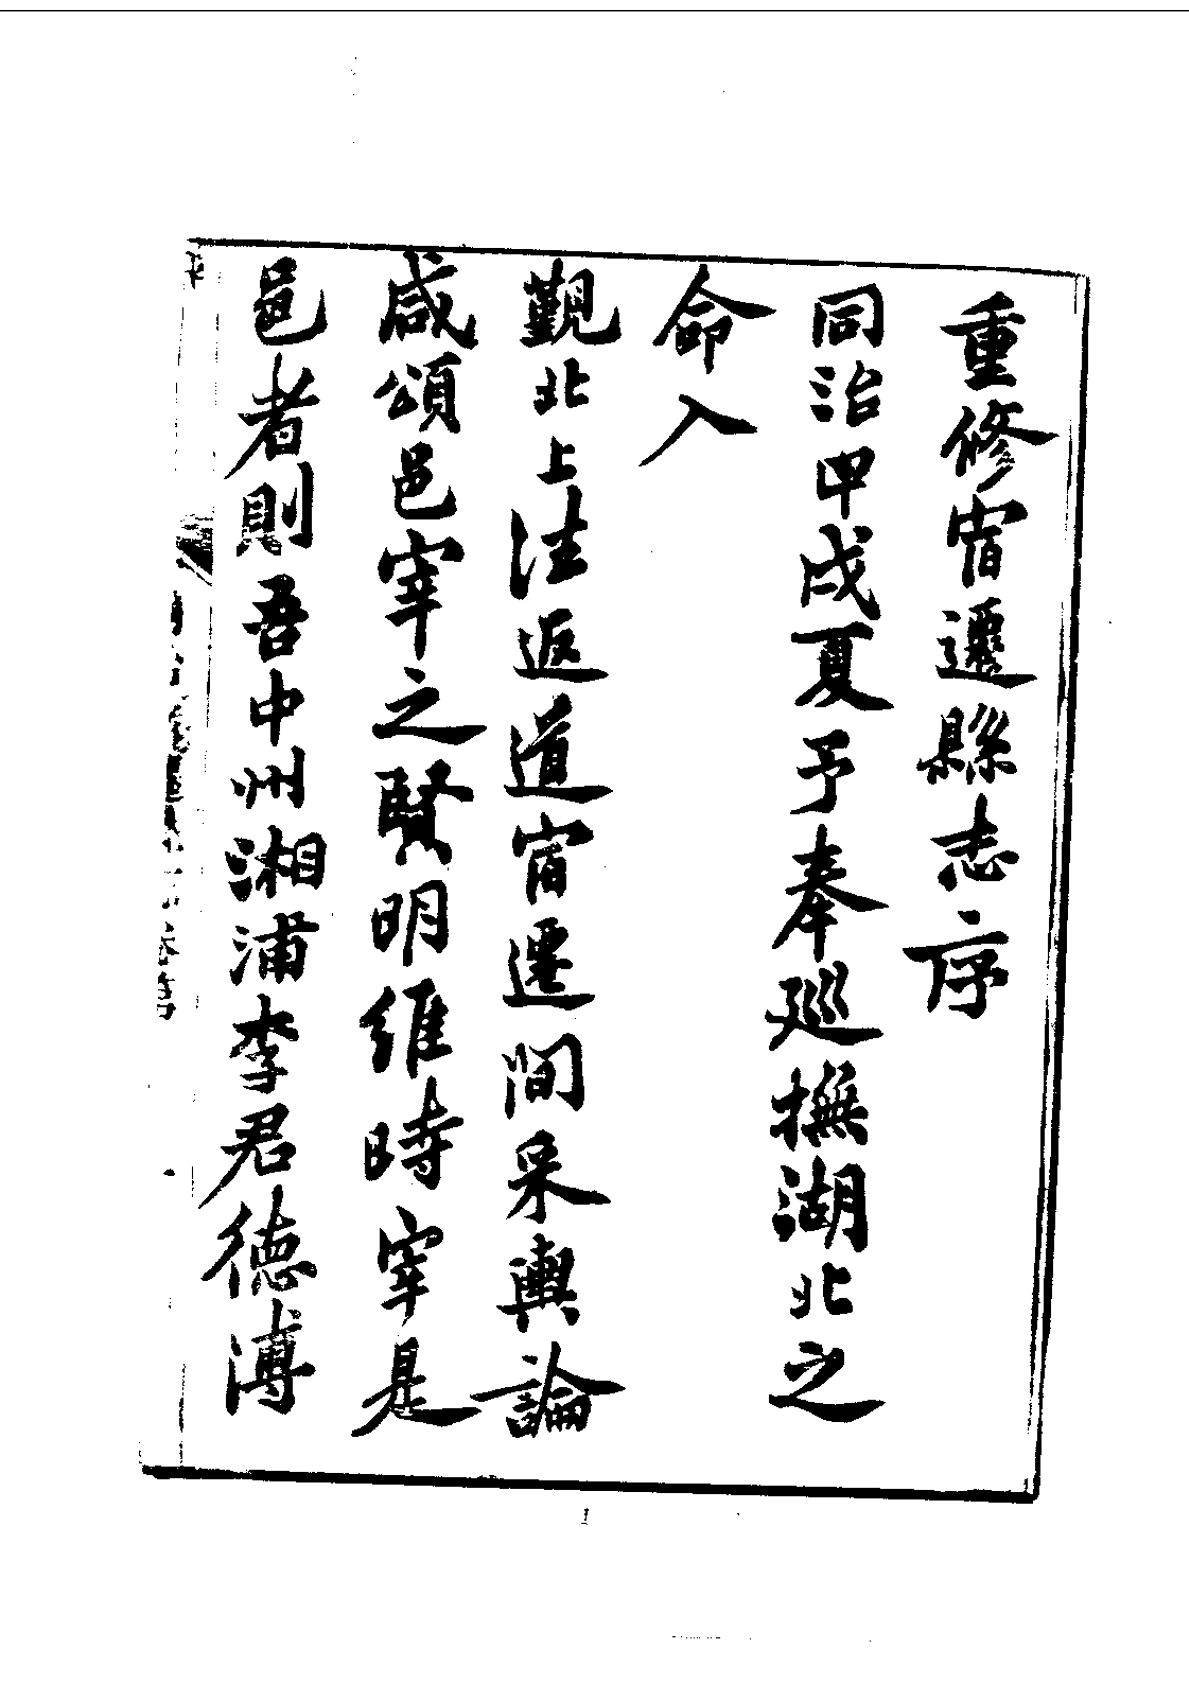 重修宿遷縣志序
同治甲戌夏予奉廵撫湖北之
命入
覲北上往返道宿遷間采輿論
咸頌邑宰之賢明維時宰是
邑者則吾中州湘浦李君德溥
1